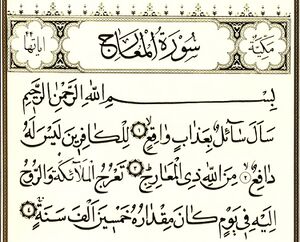 مكية
سورة المعارج
آياتها ٤٤
بِسْمِ اللهِ الرَّحْمٰنِ الرَّحِيمِ
سَأَلَ سَائِلٌ بِعَذَابٍ وَاقِعٍ ١ لِلْكَافِرِينَ لَيْسَ لَهُ
دَافِعٌ ٢ مِنَ اللهِ ذِى الْمَعَارِجِ ٣ تَعْرُجُ الْمَلَائِكَةُ وَالرُّوحُ
إِلَيْهِ فِى يَوْمٍ كَانَ مِقْدَارُهُ خَمْسِينَ أَلْفَ سَنَةٍ ٤